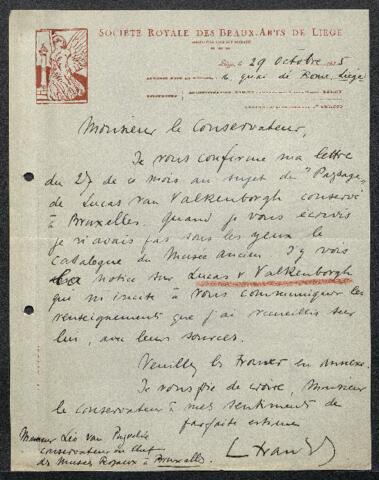 SOCIÉTÉ ROYALE DES BEAUX-ARTS DE LIÉGE
Liége, le 29 Octobre 1935
quai de Rome, Liége
Monsieur le Conservateur,
Je vous confirme ma lettre
du 27 de ce mois au sujet du "Paysage"
de Lucas van Valkenborgh conservé
à Bruxelles. Quand je vous écrivis
je n'avais pas sous les yeux le
catalogue du Musée ancien. J'y vois
la notice sur Lucas v Valkenborgh
qui m'incite à vous communiquer les
renseignements que j'ai recueillis sur
lui, avec leurs sources.
Veuillez les trouver en annexe.
Je vous prie de croire, Monsieur
le Conservateur à mes sentiments de
parfaite estime
Monsieur Léo van Puyvelde
conservateur en Chef
des Musées Royaux à Bruxelles.